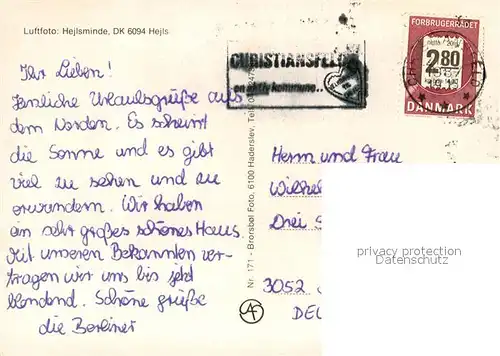 Luftfoto: Hejlsminde, DK 6094 Hejls
Ihr Lieben!
Herrliche Urlaubsgrüße aus
dem Norden. Es scheint
die Sonne und es gibt
viel zu sehen und zu
erwandern. Wir haben
ein sehr großes schönes Haus.
Mit unseren Bekannten ver-
tragen wir uns bis jetzt
blendend. Schöne Grüße
die Berliner
Nr. 171 - Brorsbøl Foto, 6100 Haderslev, Tel.
CHRISTIANSFELD
en aktiv kommune..
FORBRUGERRÅDET
2.80
DANMARK
Herrn und Frau
Wilhel
Drei
3052
DEU
privacy protection
Datenschutz